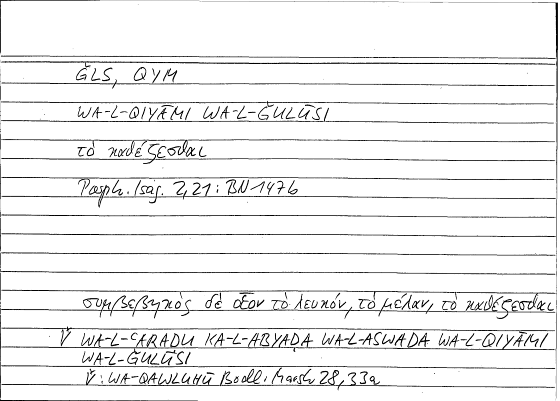 ǦLS, QYM
WA-L-QIYĀMI WA-L-ǦULŪSI
τὸ καθέζεσθαι
Porph. Isag. 2,21: BN 147b
συμβεβηκός δέ οἷον τὸ λευκόν, τὸ μέλαν, τὸ καθέζεσθαι
WA-L-ʿARAḌU KA-L-ABYAḌA WA-L-ASWADA WA-L-QIYĀMI
WA-L-ǦULŪSI
: WA-QAWLUHŪ Bodl. Marsh 28, 33a